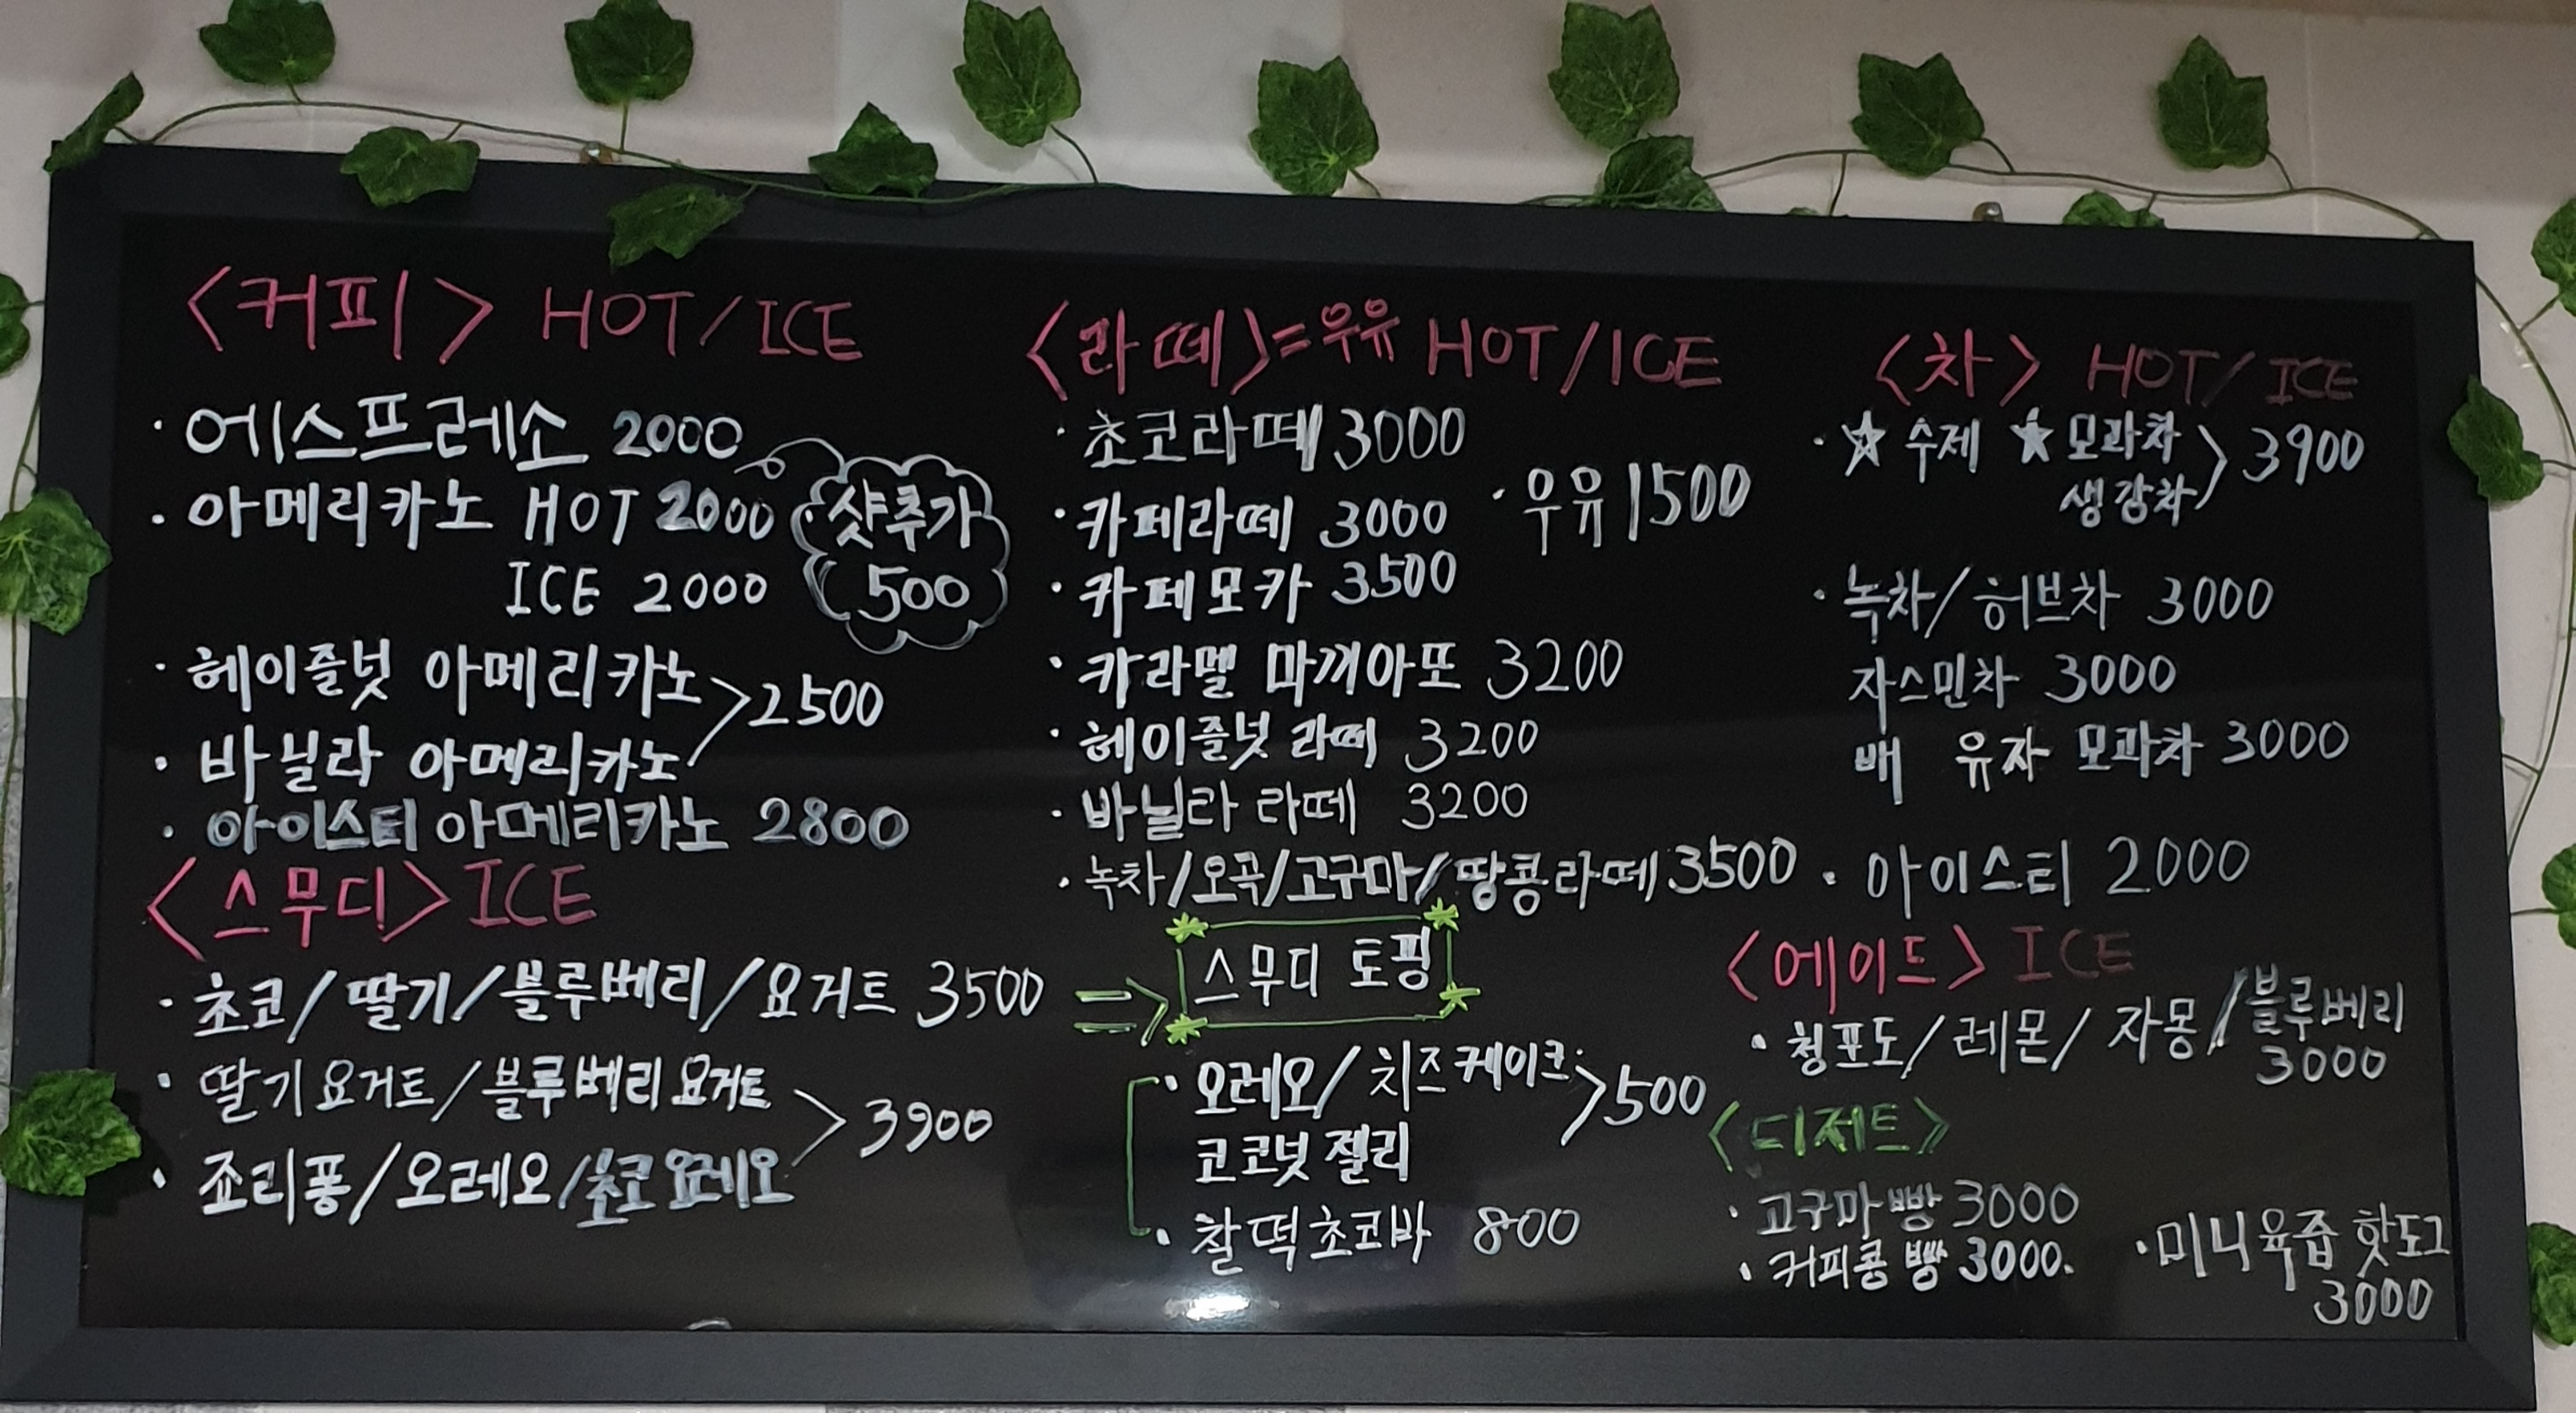 <커피> HOT/ICE
· 에스프레소 2000
· 아메리카노 HOT 2000
ICE 2000
샷추가
500
· 헤이즐넛 아메리카노
· 바닐라 아메리카노 > 2500
· 아이스티 아메리카노 2800
<스무디> ICE
· 초코/딸기/블루베리/요거트 3500
· 딸기요거트/블루베리요거트
· 죠리퐁/오레오/초코오레오 > 3900
<라떼>=우유 HOT/ICE
· 초코라떼 3000
· 카페라떼 3000
· 우유 1500
· 카페모카 3500
· 카라멜 마끼아또 3200
· 헤이즐넛 라떼 3200
· 바닐라 라떼 3200
· 녹차/오곡/고구마/땅콩라떼 3500
⇒ 스무디 토핑
· 오레오/치즈케이크 > 500
코코넛 젤리
· 찰떡초코바 800
<차> HOT/ICE
· ☆ 수제 ★ 모과차 > 3900
생강차
· 녹차/허브차 3000
자스민차 3000
배 유자 모과차 3000
· 아이스티 2000
<에이드> ICE
· 청포도/레몬/자몽/블루베리
3000
<디저트>
· 고구마빵 3000
· 커피콩빵 3000.
· 미니육즙 핫도그
3000